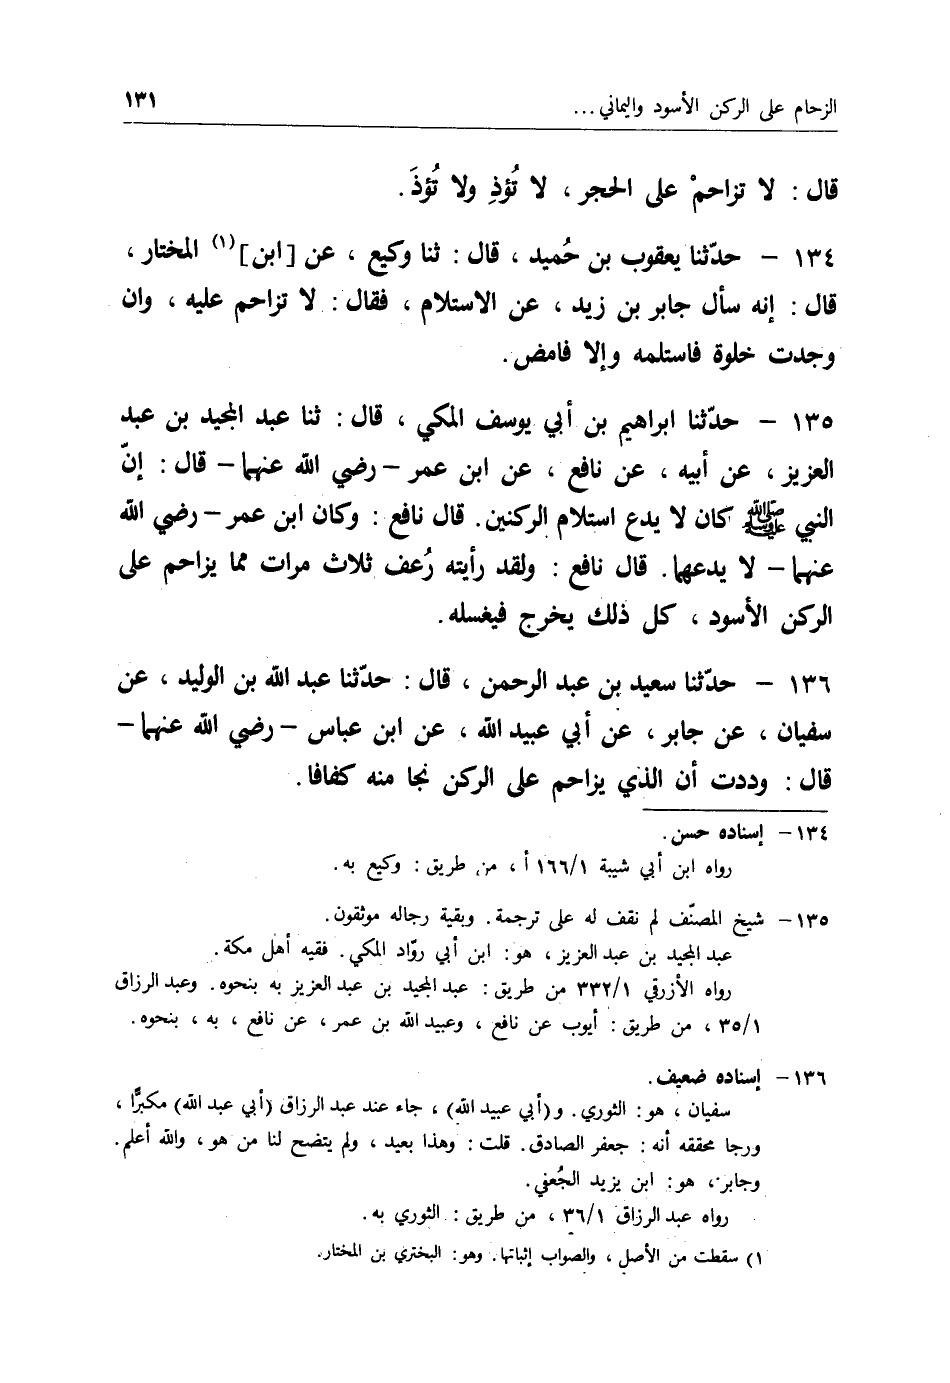 الزحام على الركن الأسود واليماني ... ١٣١
قال : لا تزاحمْ على الحجر ، لا تُؤذِ ولا تُؤذَ .
١٣٤ – حدّثنا يعقوب بن حُميد ، قال : ثنا وكيع ، عن [ابن](١) المختار ،
قال : إنه سأل جابر بن زيد ، عن الاستلام ، فقال : لا تزاحم عليه ، وان
وجدت خلوة فاستلمه وإلا فامض .
١٣٥ – حدّثنا ابراهيم بن أبي يوسف المكي ، قال : ثنا عبد المجيد بن عبد
العزيز ، عن أبيه ، عن نافع ، عن ابن عمر – رضي الله عنهما – قال : إنّ
النبي ﷺ كان لا يدع استلام الركنين . قال نافع : وكان ابن عمر – رضي الله
عنهما – لا يدعهما . قال نافع : ولقد رأيته رُعف ثلاث مرات مما يزاحم على
الركن الأسود ، كل ذلك يخرج فيغسله .
١٣٦ – حدّثنا سعيد بن عبد الرحمن ، قال : حدّثنا عبد الله بن الوليد ، عن
سفيان ، عن جابر ، عن أبي عبيد الله ، عن ابن عباس – رضي الله عنهما –
قال : وددت أن الذي يزاحم على الركن نجا منه كفافا .
١٣٤ – إسناده حسن .
رواه ابن أبي شيبة ١٦٦/١ أ ، من طريق : وكيع به .
١٣٥ – شيخ المصنّف لم نقف له على ترجمة . وبقية رجاله موثقون .
عبد المجيد بن عبد العزيز ، هو : ابن أبي روّاد المكي . فقيه أهل مكة .
رواه الأزرقي ٣٣٢/١ من طريق : عبد المجيد بن عبد العزيز به بنحوه . وعبد الرزاق
٣٥/١ ، من طريق : أيوب عن نافع ، وعبيد الله بن عمر ، عن نافع ، به ، بنحوه .
١٣٦ – إسناده ضعيف .
سفيان ، هو : الثوري . و(أبي عبيد الله) ، جاء عند عبد الرزاق (أبي عبد الله) مكبرًّا ،
ورجا محققه أنه : جعفر الصادق . قلت : وهذا بعيد ، ولم يتضح لنا من هو ، والله أعلم .
وجابر ، هو : ابن يزيد الجُعفي .
رواه عبد الرزاق ٣٦/١ ، من طريق : الثوري به .
١) سقطت من الأصل ، والصواب إثباتها . وهو : البختري بن المختار .